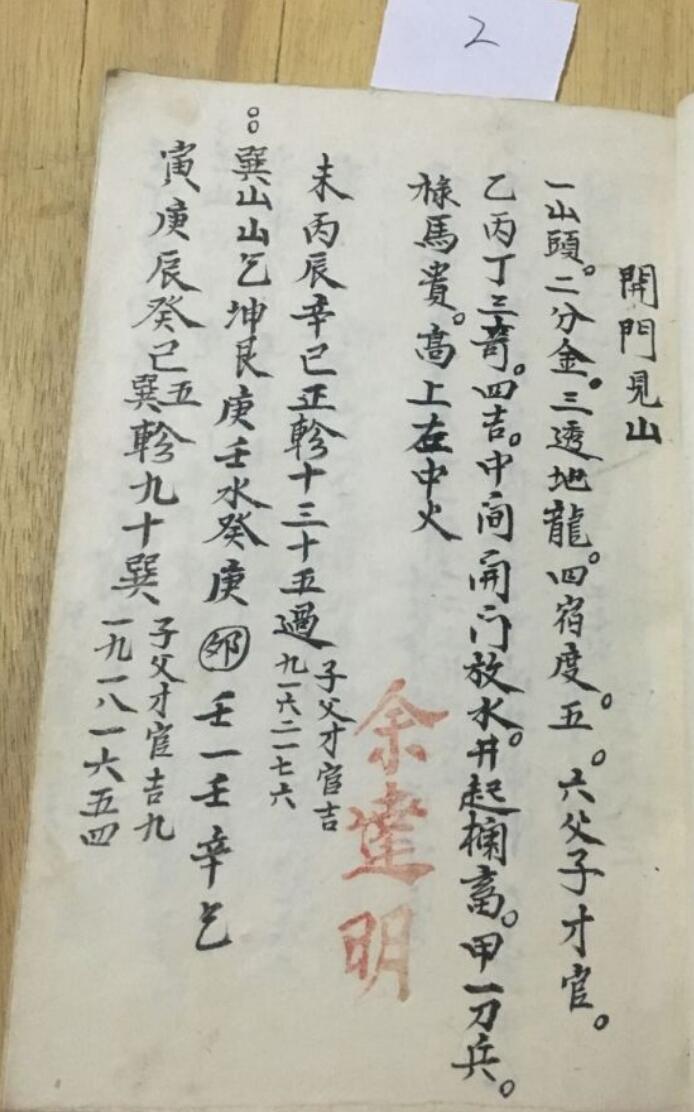 2
開門見山
一山頭。二分金。三透地龍。四宿度。五。六父子才官。
乙丙丁三竒。四吉。中间開门放水。井起欄畜。甲一刀兵。
祿馬貴。高上在中火
余達明
未丙辰辛巳正軫十三十五過
子父才官吉
九一六二一七六
巽山山乞坤艮庚壬水癸庚 壬一壬辛乞
寅庚辰癸己五
巽軫九十巽
子父才官吉九
一九一八一六五四